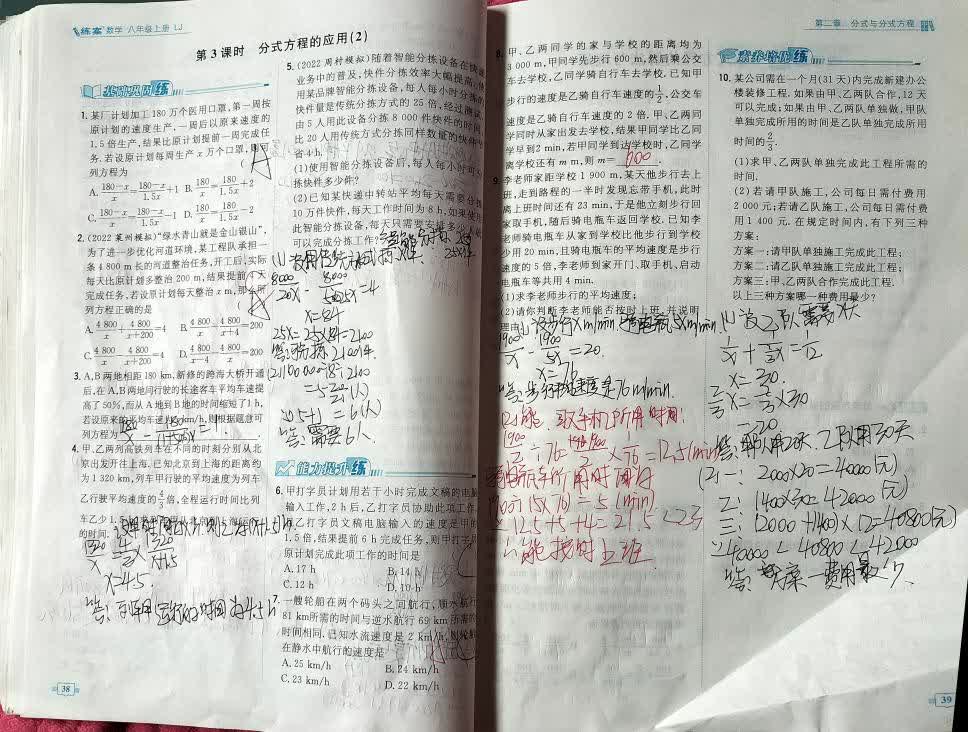 练案 数学 八年级上册 LJ
第3课时 分式方程的应用(2)
基础巩固练
1. 某厂计划加工180万个医用口罩,第一周按
原计划的速度生产,一周后以原来速度的
1.5倍生产,结果比原计划提前一周完成任
务,若设原计划每周生产x万个口罩,则可
列方程为 ( A
A. 180−x/x=180−x/1.5x+1 B. 180/x=180/1.5x+2
C. 180−x/x=180−x/1.5x−1 D. 180/x=180/1.5x−2
2. (2022 莱州模拟)“绿水青山就是金山银山”,
为了进一步优化河道环境,某工程队承担一
条4 800 m长的河道整治任务,开工后,实际
每天比原计划多整治200 m,结果提前4天
完成任务,若设原计划每天整治x m,那么所
列方程正确的是
A. 4 800/x+4 800/x+200=4 B. 4 800/x−4 800/x+4=200
C. 4 800/x−4 800/x+200=4 D. 4 800/x−4−4 800/x=200
3. A,B两地相距180 km,新修的跨海大桥开通
后,在A,B两地间行驶的长途客车平均车速提
高了50%,而从A地到B地的时间缩短了1 h,
若设原来的平均车速为x km/h,则根据题意可
列方程为
4. 甲、乙两列高铁列车在不同的时刻分别从北
京出发开往上海.已知北京到上海的距离约
为1 320 km,列车甲行驶的平均速度为列车
乙行驶平均速度的4/3倍,全程运行时间比列
车乙少1.5
的时间.
x=4.5
38
5. (2022 周村模拟)随着智能分拣设备在快递
业务中的普及,快件分拣效率大幅提高.使
用某品牌智能分拣设备,每人每小时分拣的
快件量是传统分拣方式的25倍,经过测试,
由5人用此设备分拣8 000件快件的时间,
比20人用传统方式分拣同样数量的快件节
省4 h.
(1)使用智能分拣设备后,每人每小时可分
拣快件多少件?
(2)已知某快递中转站平均每天需要分拣
10万件快件,每天工作时间为8 h,如果使用
此智能分拣设备,每天只需要安排多少人就
可以完成分拣工作?
8000/20x−8000/5×25x=4
x=84
25x=25×84=2100
=5 20/21(人)
5+1=6(人)
答:需要6人.
能力提升练
6. 甲打字员计划用若干小时完成文稿的电脑
输入工作,2 h后,乙打字员协助此项工作,
且乙打字员文稿电脑输入的速度是甲的
1.5倍,结果提前6 h完成任务,则甲打字员
原计划完成此项工作的时间是
A. 17 h B. 14 h
C. 12 h D. 10 h
一艘轮船在两个码头之间航行,顺水航行
81 km所需的时间与逆水航行69 km所需的
时间相同.已知水流速度是2 km/h,则轮船
在静水中航行的速度是
A. 25 km/h B. 24 km/h
C. 23 km/h D. 22 km/h
第二章 分式与分式方程
8. 甲、乙两同学的家与学校的距离均为
3 000 m,甲同学先步行600 m,然后乘公交
车去学校,乙同学骑自行车去学校.已知甲
步行的速度是乙骑自行车速度的1/2,公交车
速度是乙骑自行车速度的2倍.甲、乙两同
学同时从家出发去学校,结果甲同学比乙同
学早到2 min,若甲同学到达学校时,乙同学
离学校还有m m,则m= 600 .
9. 李老师家距学校1 900 m,某天他步行去上
班,走到路程的一半时发现忘带手机,此时
离上班时间还有23 min,于是他立刻步行回
家取手机,随后骑电瓶车返回学校.已知李
老师骑电瓶车从家到学校比他步行到学校
少用20 min,且骑电瓶车的平均速度是步行
速度的5倍,李老师到家开门、取手机、启动
电瓶车等共用4 min.
(1)求李老师步行的平均速度;
(2)请你判断李老师能否按时上班,并说明
理由.
1900/x−1900/5x=20
x=76
答:步行的速度是76m/min.
(2)能 取手机所用时间:
1900/2÷76=1900/2×1/76=12.5(min)
1900÷(5×76)=5(min)
∵12.5+5+4=21.5<23
∴能按时上班
素养培优练
10. 某公司需在一个月(31天)内完成新建办公
楼装修工程.如果由甲、乙两队合作,12天
可以完成;如果由甲、乙两队单独做,甲队
单独完成所用的时间是乙队单独完成所用
时间的2/3.
(1)求甲、乙两队单独完成此工程所需的
时间.
(2)若请甲队施工,公司每日需付费用
2 000元;若请乙队施工,公司每日需付费
用1 400元.在规定时间内,有下列三种
方案:
方案一:请甲队单独施工完成此工程;
方案二:请乙队单独施工完成此工程;
方案三:甲、乙两队合作完成此工程.
以上三种方案哪一种费用最少?
(1)设乙队需要x天
1/x+1/⅔x=1/12
x=30
2/3x=2/3×30
=20
答:甲队用20天,乙队用30天
(2)一:2000×20=40000(元)
二:1400×30=42000(元)
三:(2000+1400)×12=40800(元)
∵40000<40800<42000
答:方案一费用最少.
39